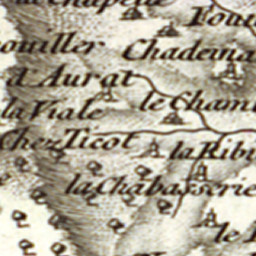 la Chapelle
ouiller Chadena
l'Aurat
la Viale le Cham
Chez Ticot la Ribi
la Chabasserie
le